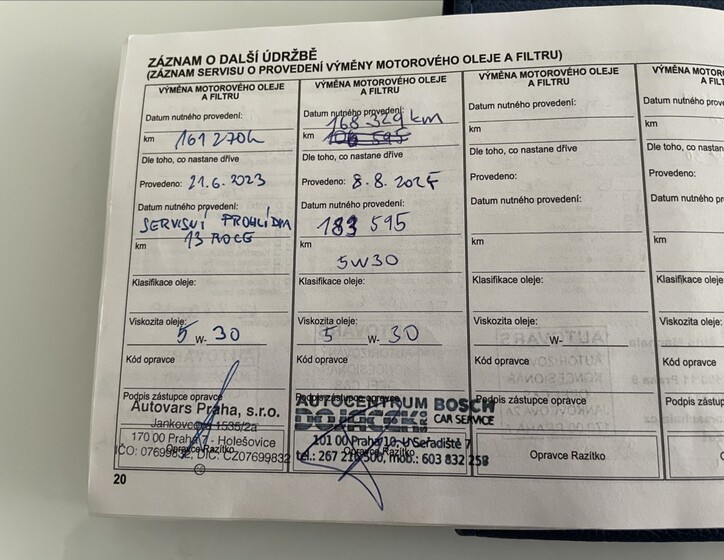 ZÁZNAM O DALŠÍ ÚDRŽBĚ
(ZÁZNAM SERVISU O PROVEDENÍ VÝMĚNY MOTOROVÉHO OLEJE A FILTRU)
VÝMĚNA MOTOROVÉHO OLEJE
A FILTRU
Datum nutného provedení:
km 161 270k
Dle toho, co nastane dříve
Provedeno: 21.6.2023
Datum nutného provedení:
SERVISNÍ PROHLÍDKA
km 13 ROCE
Klasifikace oleje:
Viskozita oleje:
5 W- 30
Kód opravce
Podpis zástupce opravce
Autovars Praha, s.r.o.
Jankovcova 1535/2a
170 00 Praha 7 - Holešovice
Opravce Razítko
IČO: 07699832, DIČ: CZ07699832
20
VÝMĚNA MOTOROVÉHO OLEJE
A FILTRU
Datum nutného provedení:
168 329 km
km
Dle toho, co nastane dříve
Provedeno: 8.8.2025
Datum nutného provedení:
183 595
km
5W30
Klasifikace oleje:
Viskozita oleje:
5 W- 30
Kód opravce
Podpis zástupce opravce
AUTOCENTRUM BOSCH
DOJÁČEK s.r.o. CAR SERVICE
101 00 Praha 10, U Seřadiště 7
Opravce Razítko
tel.: 267 216 500, mob.: 603 832 258
VÝMĚNA MOTOROVÉHO OLEJE
A FILTRU
Datum nutného provedení:
km
Dle toho, co nastane dříve
Provedeno:
Datum nutného provedení:
km
Klasifikace oleje:
Viskozita oleje:
W-
Kód opravce
Podpis zástupce opravce
Opravce Razítko
VÝMĚNA MOTOROV
A FILT
Datum nutného prove
km
Dle toho, co nastane
Provedeno:
Datum nutného pr
km
Klasifikace oleje:
Viskozita oleje:
Kód opravce
Podpis zástup
O